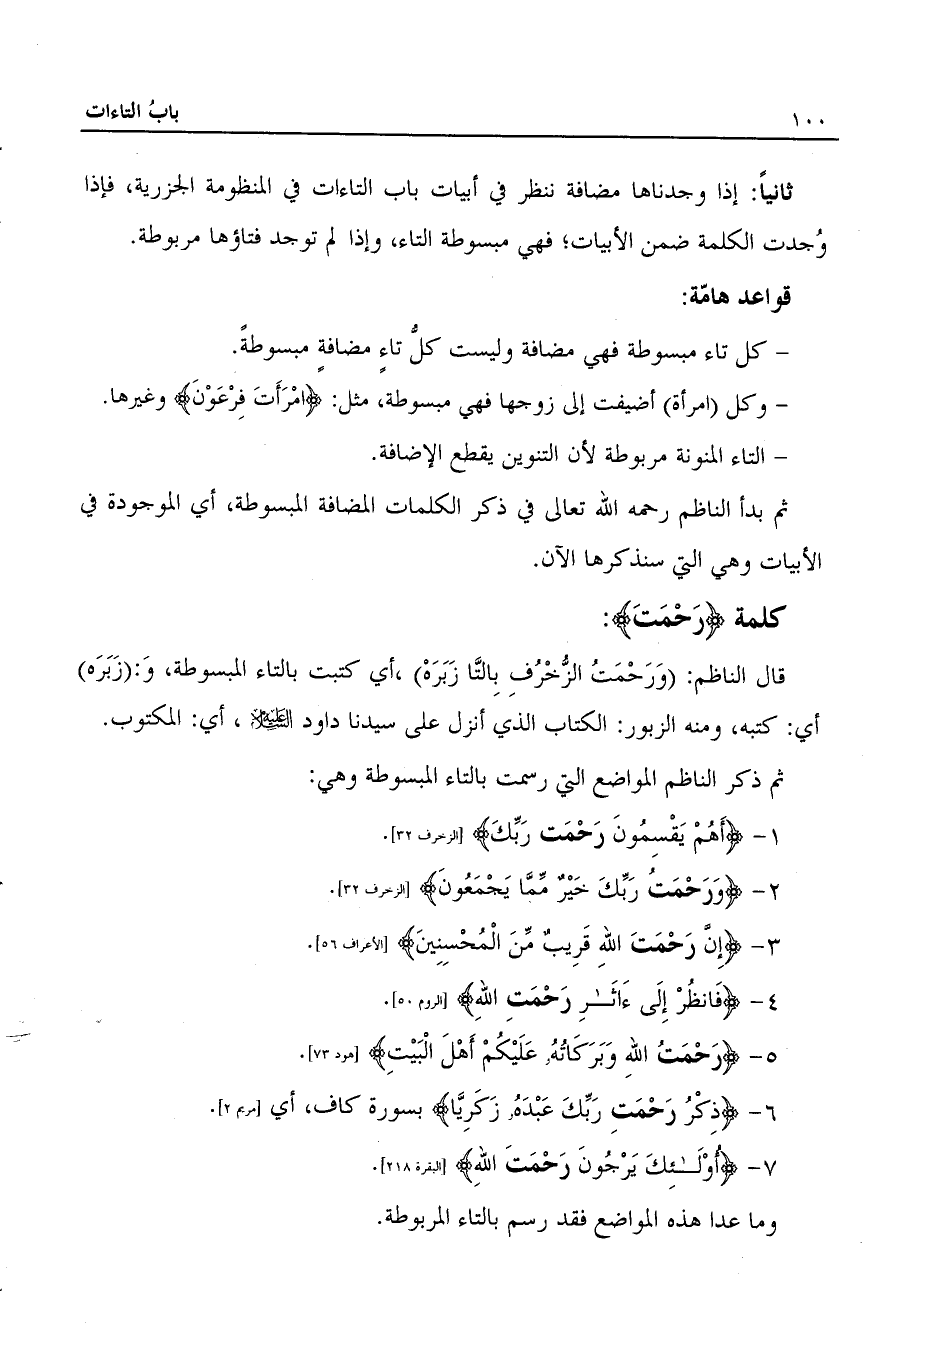 ١٠٠
بابُ التاءات
ثانياً: إذا وجدناها مضافة ننظر في أبيات باب التاءات في المنظومة الجزرية، فإذا
وُجدت الكلمة ضمن الأبيات؛ فهي مبسوطة التاء، وإذا لم توجد فتاؤها مربوطة.
قواعد هامّة:
– كل تاء مبسوطة فهي مضافة وليست كلُّ تاءٍ مضافةٍ مبسوطةً.
– وكل (امرأة) أضيفت إلى زوجها فهي مبسوطة، مثل: ﴿امْرَأَتَ فِرْعَوْنَ﴾ وغيرها.
– التاء المنونة مربوطة لأن التنوين يقطع الإضافة.
ثم بدأ الناظم رحمه الله تعالى في ذكر الكلمات المضافة المبسوطة، أي الموجودة في
الأبيات وهي التي سنذكرها الآن.
كلمة ﴿رَحْمَتَ﴾:
قال الناظم: (وَرَحْمَتُ الزُّخْرُفِ بِالتَّا زَبَرَهْ) ،أي كتبت بالتاء المبسوطة، وَ:(زَبَرَه)
أي: كتبه، ومنه الزبور: الكتاب الذي أنزل على سيدنا داود عليه السلام ، أي: المكتوب.
ثم ذكر الناظم المواضع التي رسمت بالتاء المبسوطة وهي:
١– ﴿أَهُمْ يَقْسِمُونَ رَحْمَت رَبِّكَ﴾ [الزخرف ٣٢].
٢– ﴿وَرَحْمَتُ رَبِّكَ خَيْرٌ مِّمَّا يَجْمَعُونَ﴾ [الزخرف ٣٢].
٣– ﴿إِنَّ رَحْمَتَ اللهِ قَرِيبٌ مِّنَ الْمُحْسِنِينَ﴾ [الأعراف ٥٦].
٤– ﴿فَانظُرْ إِلَى ءَاثَـٰـرِ رَحْمَتِ اللهِ﴾ [الروم ٥٠].
٥– ﴿رَحْمَتُ اللهِ وَبَرَكَاتُهُ عَلَيْكُمْ أَهْلَ الْبَيْتِ﴾ [هود ٧٣].
٦– ﴿ذِكْرُ رَحْمَتِ رَبِّكَ عَبْدَهُ زَكَرِيَّا﴾ بسورة كاف، أي [مريم ٢].
٧– ﴿أُوْلَـٰـئِكَ يَرْجُونَ رَحْمَتَ اللهِ﴾ [البقرة ٢١٨].
وما عدا هذه المواضع فقد رسم بالتاء المربوطة.